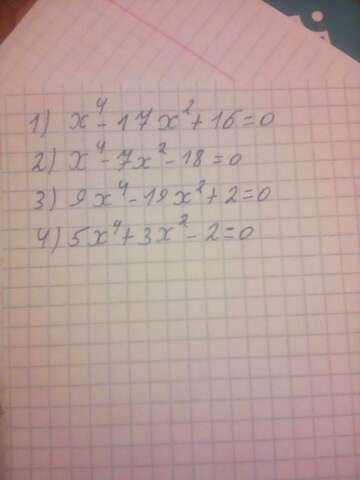 1) x⁴ - 17x² + 16 = 0
2) x⁴ - 7x² - 18 = 0
3) 9x⁴ - 19x² + 2 = 0
4) 5x⁴ + 3x² - 2 = 0